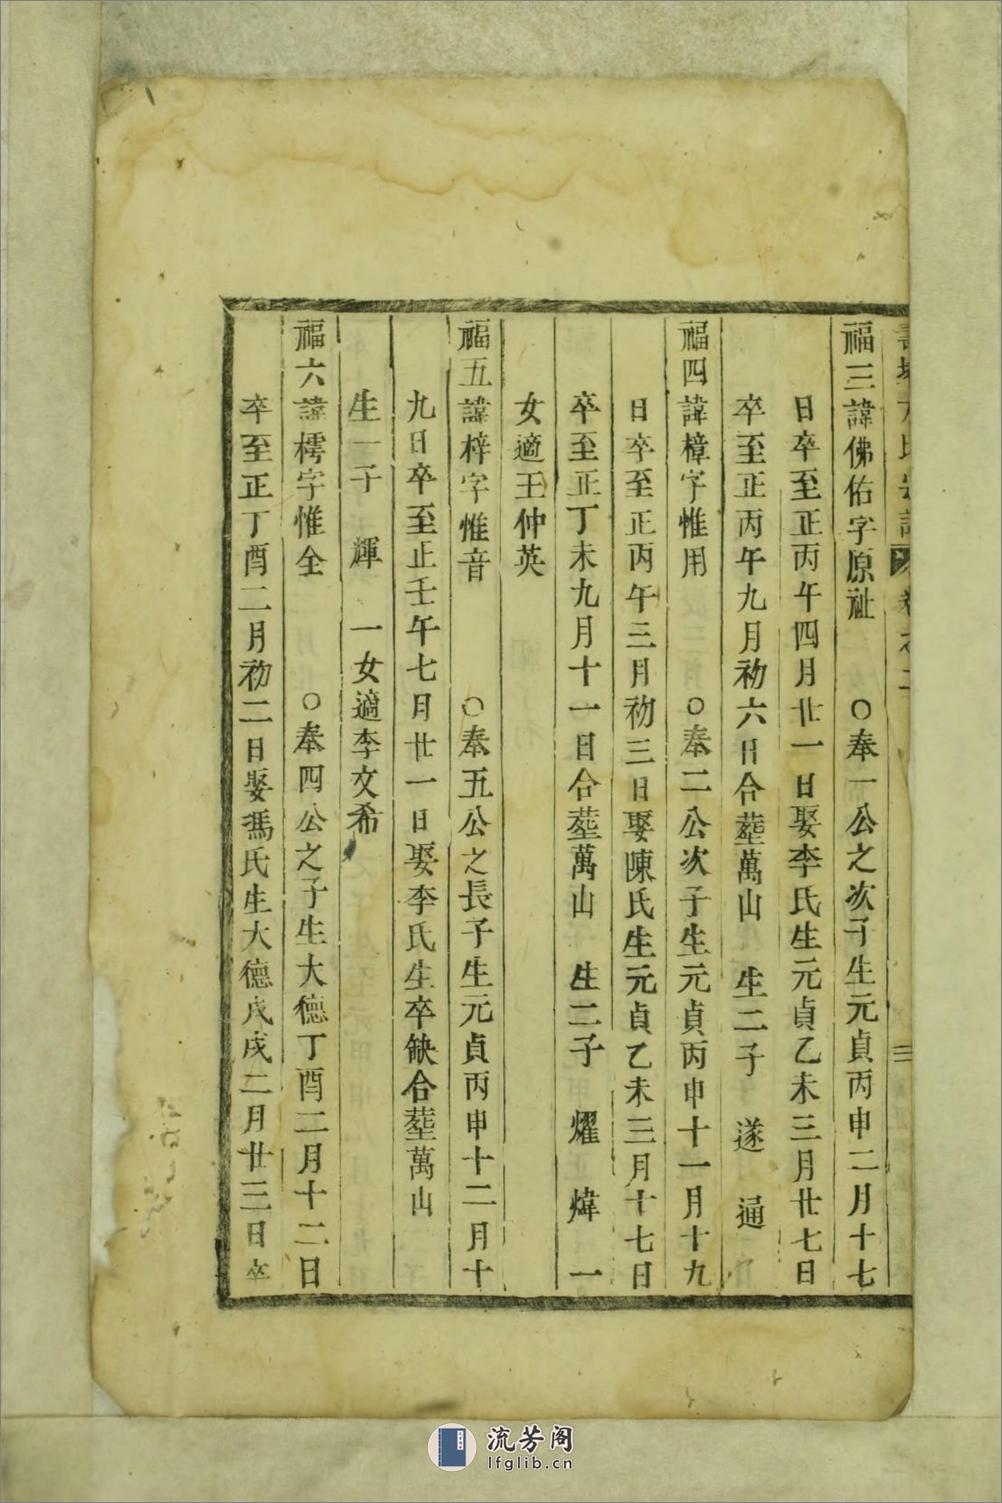 方氏 卷之二 三
福三諱佛佑字原祉 〇奉一公之次子生元貞丙申二月十七
日卒至正丙午四月廿一日娶李氏生元貞乙未三月廿七日
卒至正丙午九月初六日合塟萬山 生二子 遂 通
福四諱樟字惟用 〇奉二公次子生元貞丙申十一月十九
日卒至正丙午三月初三日娶陳氏生元貞乙未三月十七日
卒至正丁未九月十一日合塟萬山 生二子 燿 煒 一
女適王仲英
福五諱梓字惟音 〇奉五公之長子生元貞丙申十二月十
九日卒至正壬午七月廿一日娶李氏生卒缺合塟萬山
生一子 輝 一女適李文希
福六諱樗字惟全 〇奉四公之子生大德丁酉二月十二日
卒至正丁酉二月初二日娶馮氏生大德戊戌二月廿三日卒
流芳阁
lfglib.cn